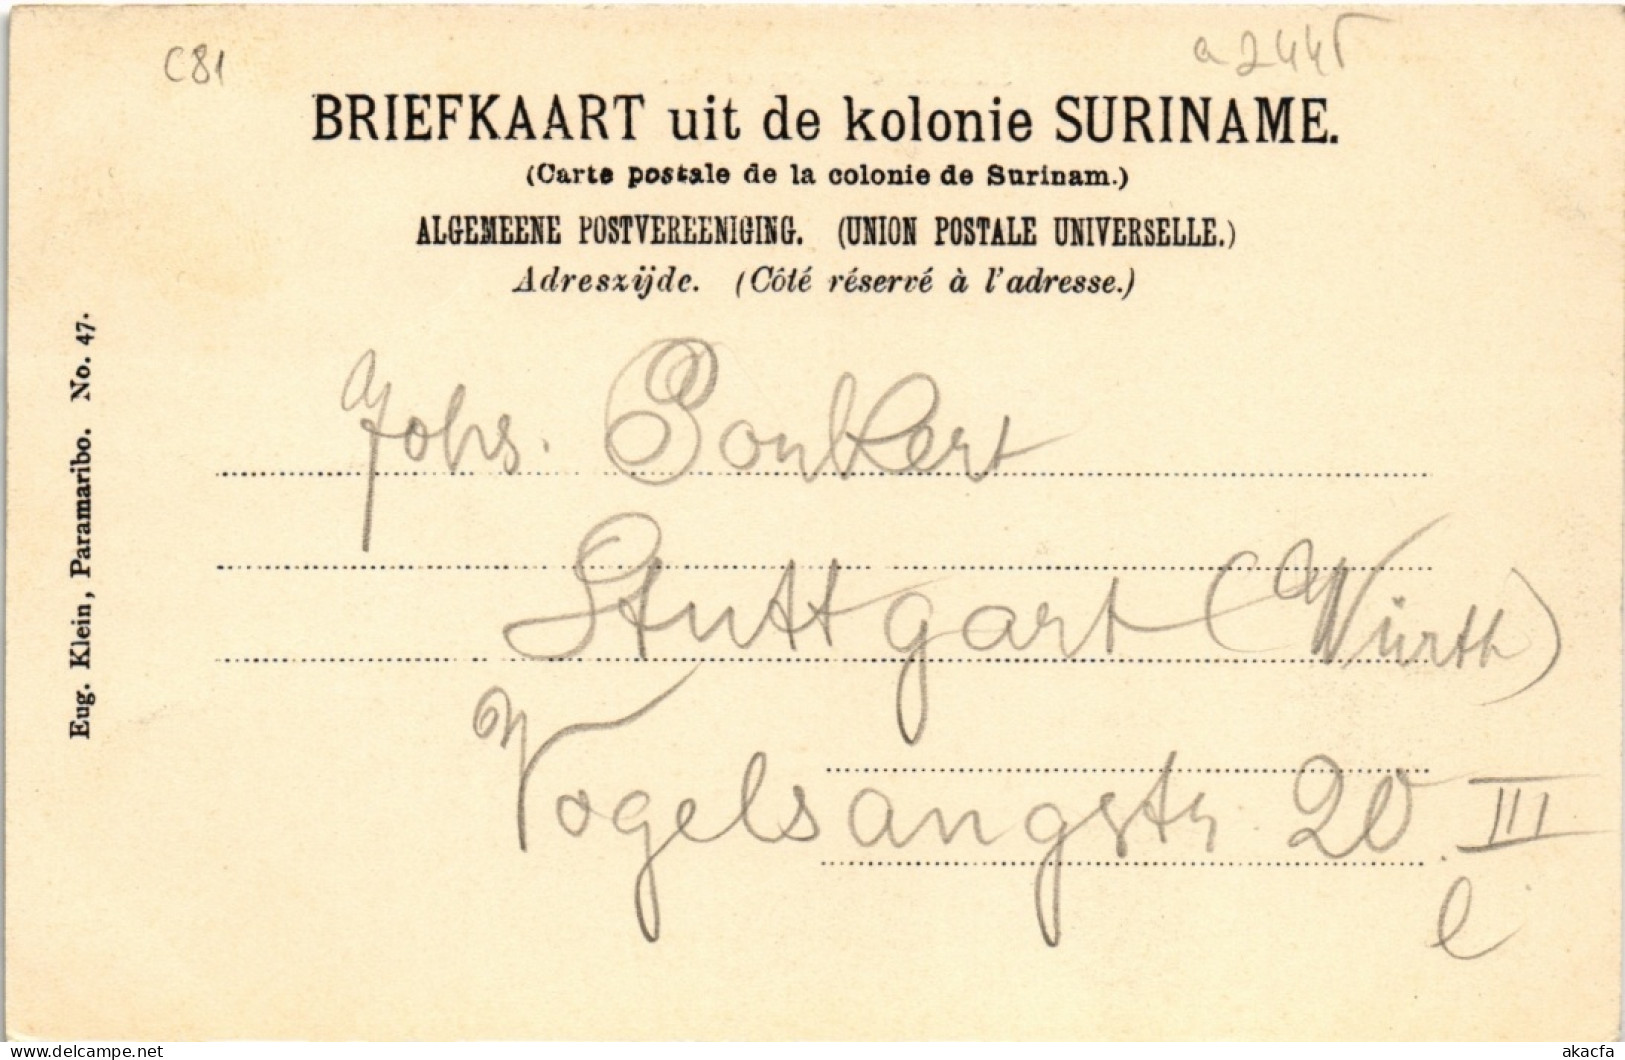 C81
a2445
BRIEFKAART uit de kolonie SURINAME.
(Carte postale de la colonie de Surinam.)
ALGEMEENE POSTVEREENIGING. (UNION POSTALE UNIVERSELLE.)
Adreszijde. (Côté réservé à l'adresse.)
Eug. Klein, Paramaribo. No. 47.
Johs. Ponkert
Stuttgart (Württh)
Vogelsangstr. 20. III
l
akacfa-delcampe.net
akacfa